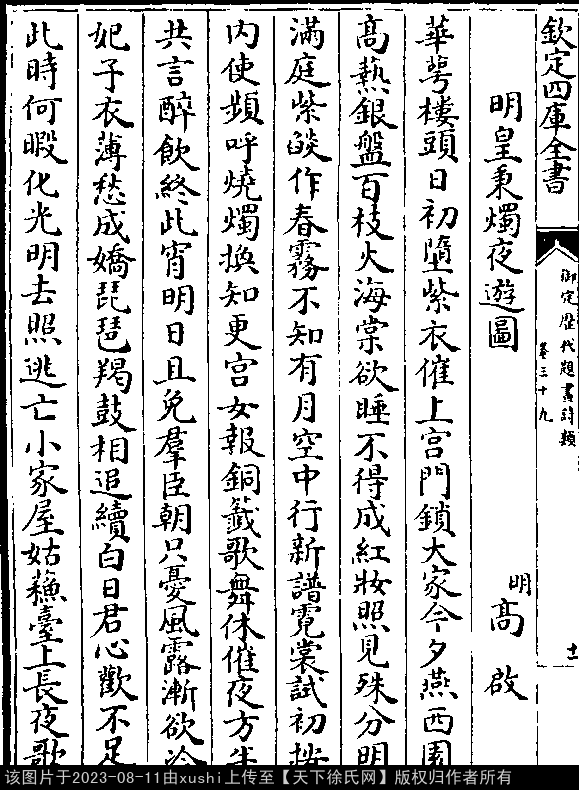 欽定四庫全書
御定歴代題畫詩類
卷三十九
十一
明皇秉燭夜遊圖
明 髙啟
華萼樓頭日初墮紫衣催上宮門鎖大家今夕燕西園
髙爇銀盤百枝火海棠欲睡不得成紅妝照見殊分明
滿庭紫燄作春霧不知有月空中行新譜霓裳試初按
内使頻呼燒燭換知更宫女報銅籖歌舞休催夜方半
共言醉飲終此宵明日且免羣臣朝只憂風露漸欲冷
妃子衣薄愁成嬌琵琶羯鼓相追續白日君心歡不足
此時何暇化光明去照逃亡小家屋姑蘓臺上長夜歌
该图片于2023-08-11由xushi上传至【天下徐氏网】版权归作者所有